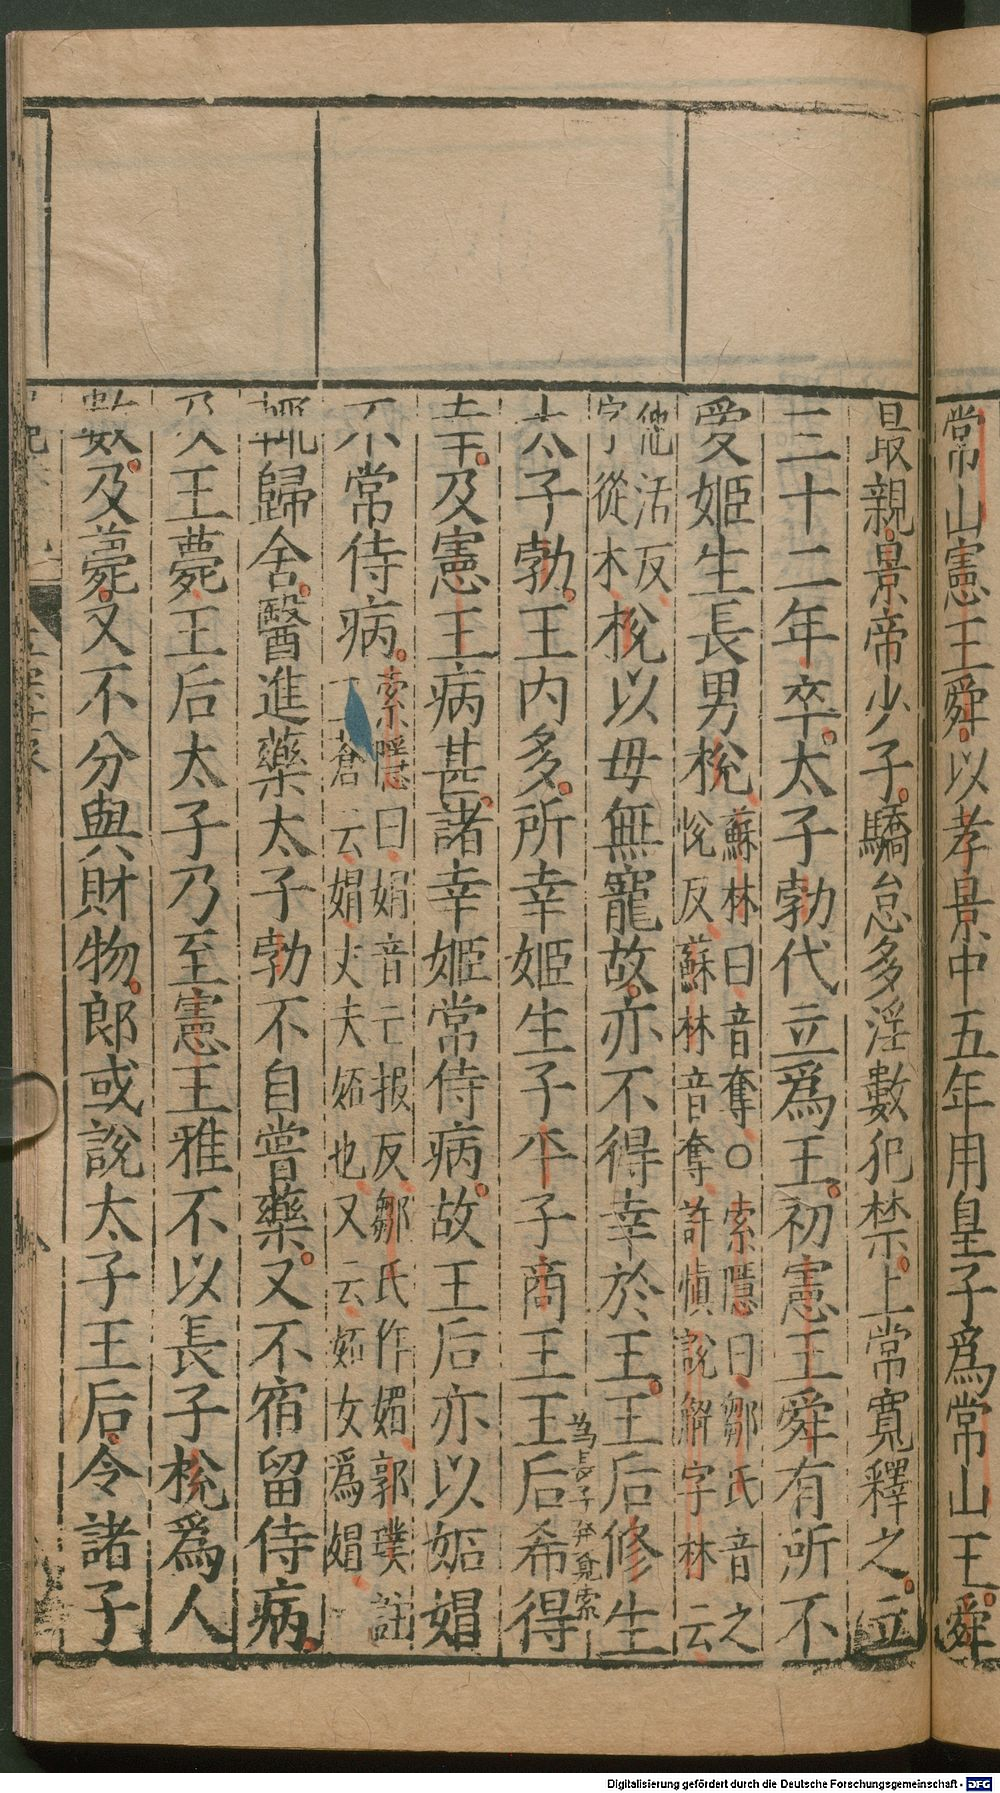 常山憲王舜以孝景中五年用皇子爲常山王舜
最親景帝少子驕怠多淫數犯禁上常寬釋之立
三十二年卒太子勃代立爲王初憲王舜有所不
愛姬生長男梲
蘇林曰音奪○索隱曰鄒氏音之
悅反蘇林音奪許慎說解字林云
他活反
字從木
梲以母無寵故亦不得幸於王王后修生
太子勃王内多所幸姬生子平子商王王后希得
為長子
幸及憲王病甚諸幸姬常侍病故王后亦以妬媢
不常侍病
索隱曰媢音亡報反鄒氏作媚郭璞註
蒼云媢丈夫妬也又云妬女爲媢
輒歸舍醫進藥太子勃不自嘗藥又不宿留侍病
及王薨王后太子乃至憲王雅不以長子梲爲人
數及薨又不分與財物郎或說太子王后令諸子
Digitalisierung gefördert durch die Deutsche Forschungsgemeinschaft - DFG